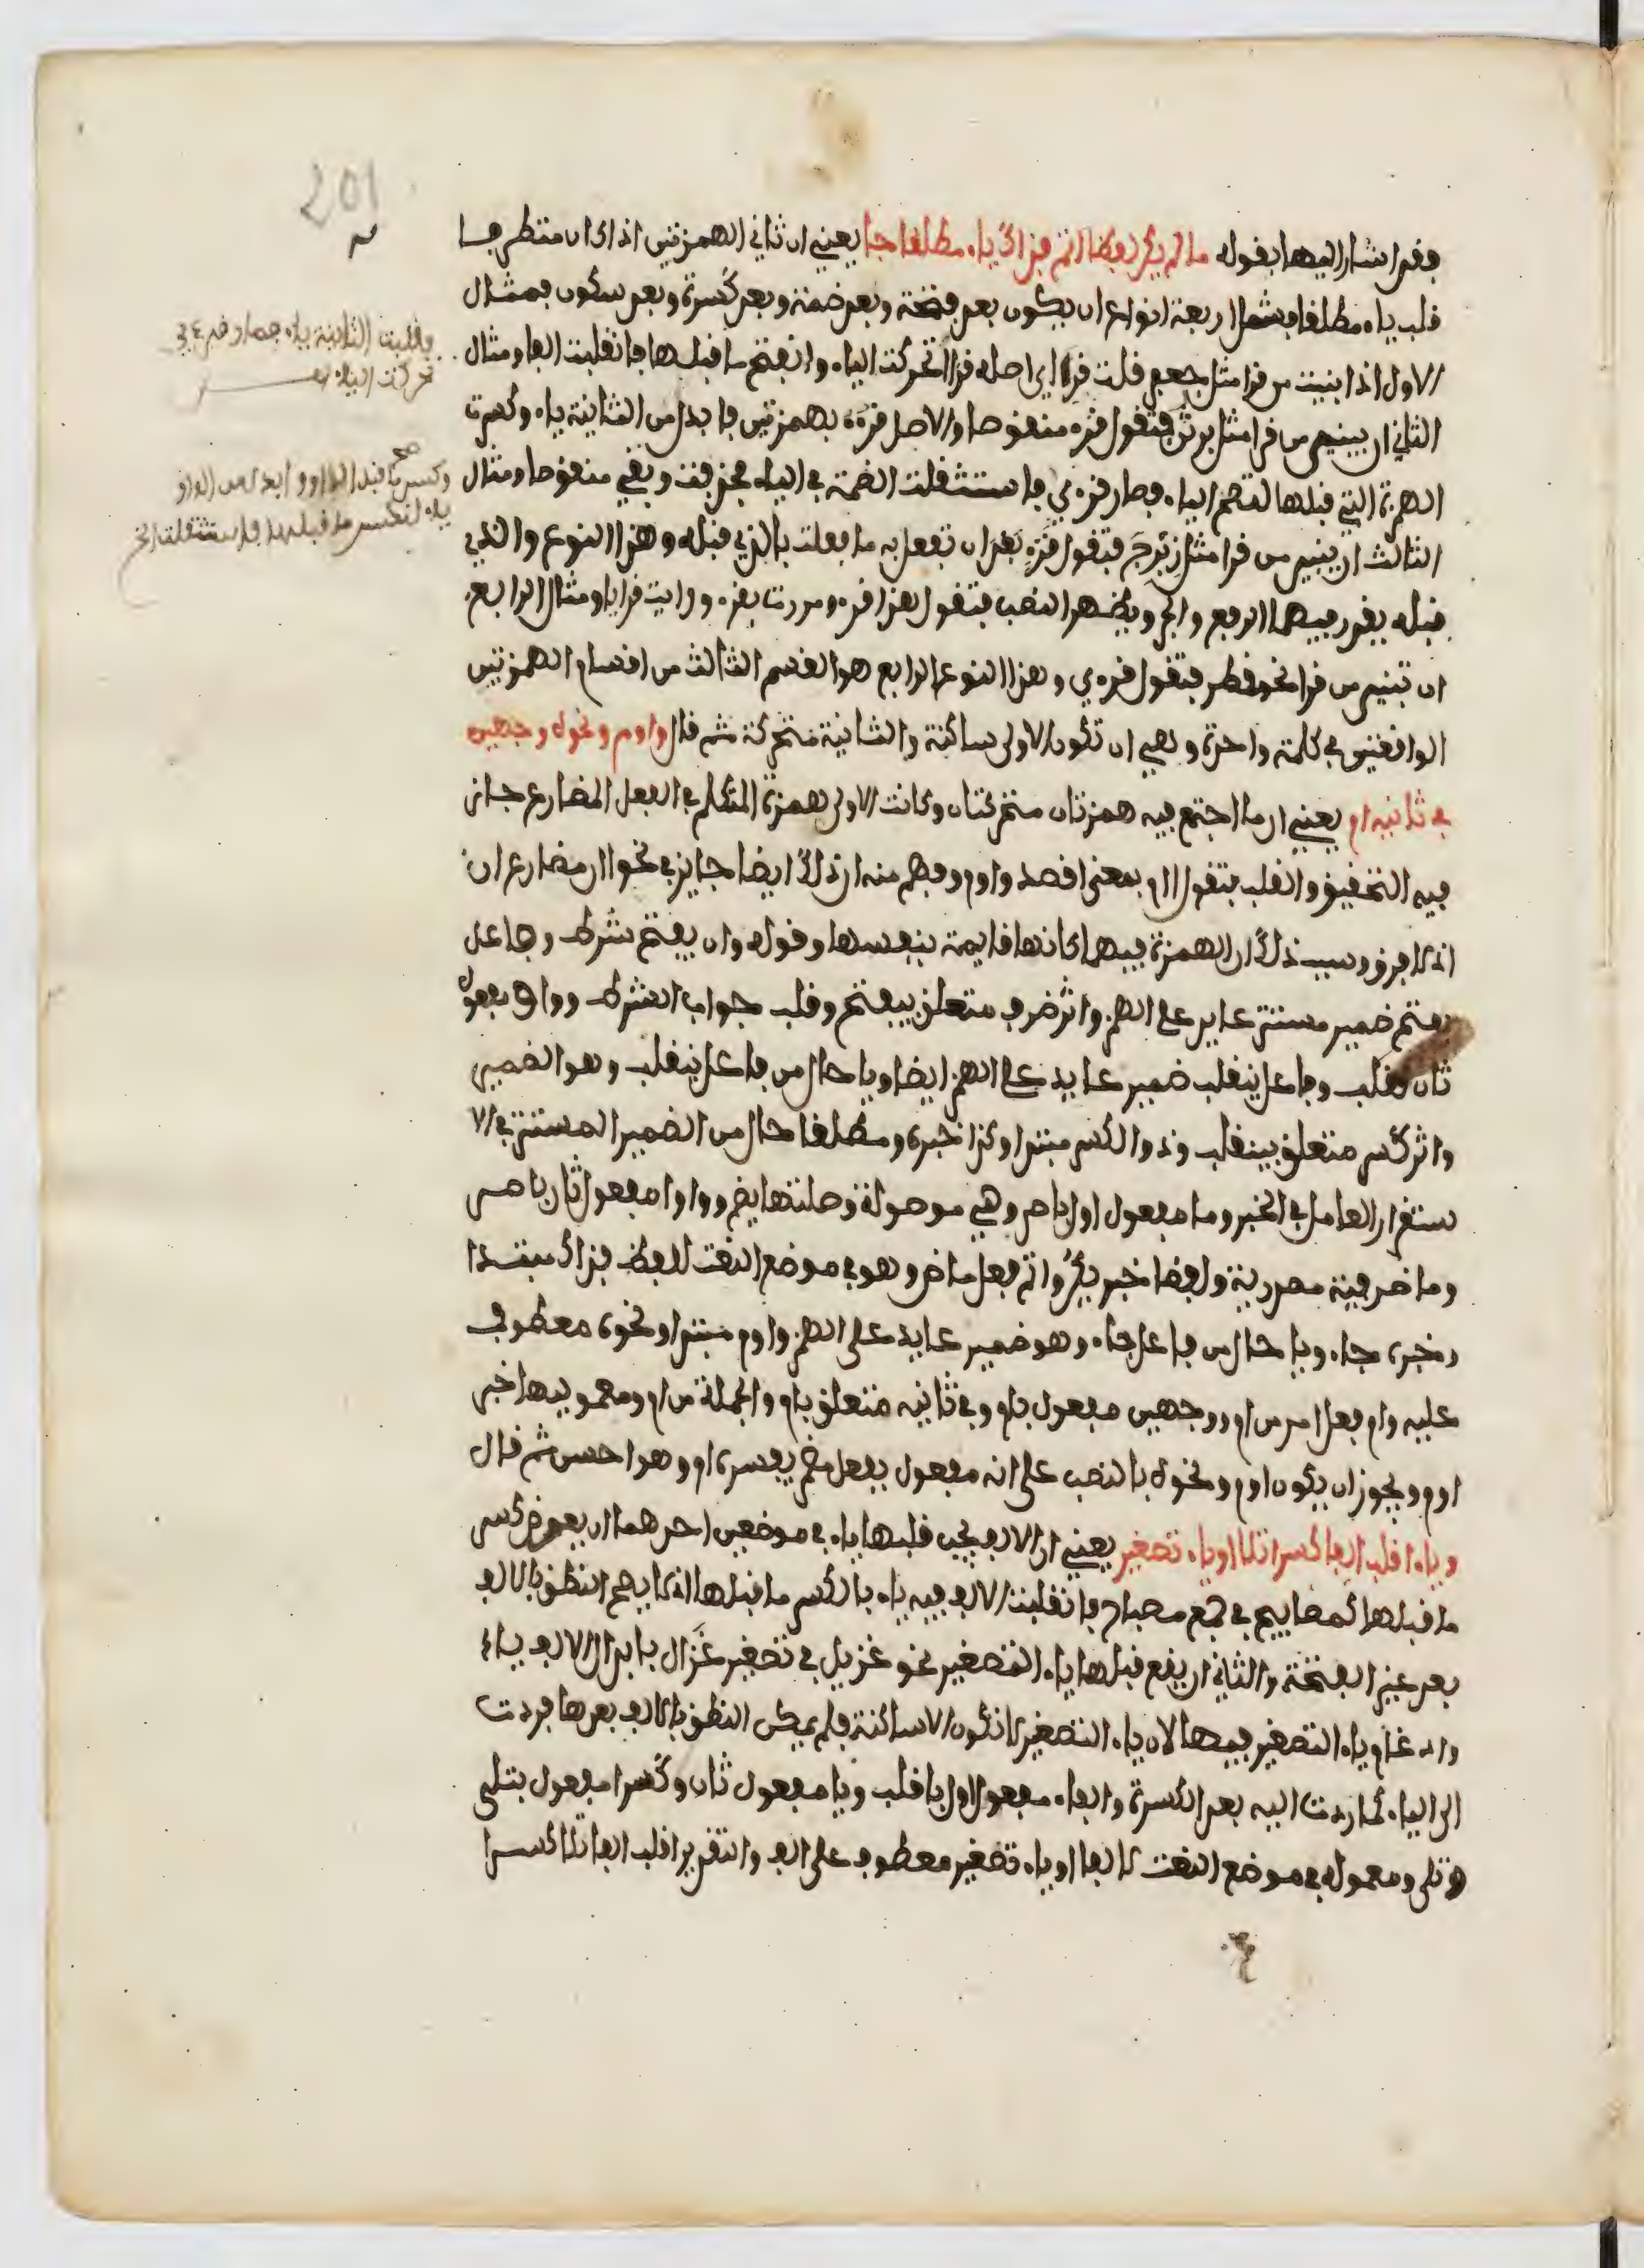 201
فقد اشار اليها بقوله ما لم يكن لفظا اتم فذاك ياء مطلقا جا يعني ان ثاني الهمزتين اذا كان متطرفا
قلب ياء مطلقا ويشمل اربعة انواع ان يكون بعد فتحة وبعد ضمة وبعد كسرة وبعد سكون فمثال
الاول اذا بنيت من قرا مثل جعفر قلت قرءا اي اصله قرءا تحركت الياء وانفتح ما قبلها فانقلبت الفا ومثال
الثاني ان يبنى من قرا مثل برثن فتقول قرء منقوصا والاصل قرءء بهمزتين فابدل من الثانية ياء وكسرت
الهمزة التي قبلها لتصح الياء فصار قرءي فاستثقلت الضمة في الياء فحذفت وبقي منقوصا ومثال
الثالث ان يبنى من قرا مثل زبرج فتقول قرء بعد ان تفعل به ما فعلت بالذي قبله وهذا النوع والذي
قبله يقدر فيهما الرفع والجر ويظهر النصب فتقول هذا قرء ومررت بقرء ورايت قرايا ومثال الرابع
ان تبني من قرا نحو قمطر فتقول قرءي وهذا النوع الرابع هو القسم الثالث من اقسام الهمزتين
الواقعتين في كلمة واحدة وهي ان تكون الاولى ساكنة والثانية متحركة ثم قال واوم ونحوه وجهين
في ثانيه ام يعني ان ما اجتمع فيه همزتان متحركتان وكانت الاولى همزة المتكلم في الفعل المضارع جاز
فيه التحقيق والقلب فتقول اام بمعنى اقصد واوم وفهم منه ان ذلك ايضا جايز في نحو اان مضارع ان
اذ لا فرق وسبب ذلك ان الهمزة فيهما كانها قايمة بنفسها وقوله وان يفتح شرط وفاعل
يفتح ضمير مستتر عايد على الهمز واثر ضم متعلق بيفتح وقلب جواب الشرط وواوا مفعول
ثان لقلب وفاعل ينقلب ضمير عايد على الهمز ايضا ويا حال من فاعل ينقلب وهو الضمير
واثر كسر متعلق بينقلب وذو الكسر مبتدا وكذا خبره ومطلقا حال من الضمير المستتر في الا
ستقرار العامل في الخبر وما مفعول اول باصر وهي موصولة وصلتها يضم وواوا مفعول ثان باصر
وما ظرفية مصدرية ولفظا خبر يكن واتم فعل ماض وهو في موضع النعت للفظ فذاك مبتدا
وخبره جاء ويا حال من فاعل جاء وهو ضمير عايد على الهمز واوم مبتدا ونحوه معطوف
عليه وام فعل امر من ام ووجهين مفعول بام وفي ثانيه متعلق بام والجملة من ام ومعموليها خبر
اوم ويجوز ان يكون اوم ونحوه بالنصب على انه مفعول بفعل مضمر يفسره ام وهو احسن ثم قال
وياء اقلب الفا كسرا تلا او ياء تصغير يعني ان الالف يجب قلبها ياء في موضعين احدهما ان يعرض كسر
ما قبلها كمصابيح في جمع مصباح فانقلبت الالف فيه ياء بالكسر ما قبلها اذ لا يصح النطق بالالف
بعد غير الفتحة والثاني ان يقع قبلها ياء التصغير نحو غزيل في تصغير غزال بابدال الالف ياء
وادغام ياء التصغير فيها لان ياء التصغير لا تكون الا ساكنة فلم يمكن النطق بالالف بعدها فردت
الى الياء كما ردت اليه بعد الكسرة والفاء مفعول اول باقلب ويا مفعول ثان وكسرا مفعول بتلى
وتلى ومعموله في موضع النعت لالفا او ياء تصغير معطوف على الف والتقدير اقلب الفا تلا كسرا
فقلبت الثانية ياء فصار قرءي
تحركت الياء
صح
وكسر ما قبل الواو وابدل من الواو
ياء لتكسر ما قبلها فاستثقلت الخ